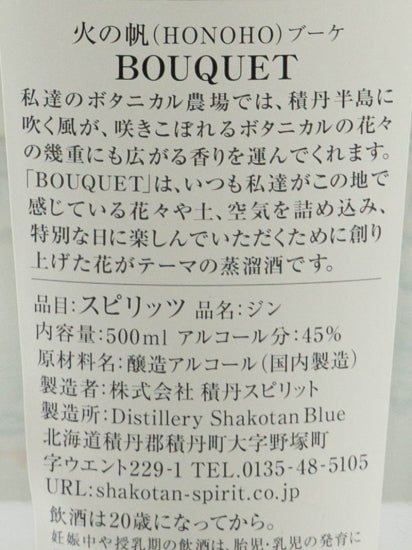 火の帆(HONOHO)ブーケ
BOUQUET
私達のボタニカル農場では、積丹半島に
吹く風が、咲きこぼれるボタニカルの花々
の幾重にも広がる香りを運んでくれます。
「BOUQUET」は、いつも私達がこの地で
感じている花々や土、空気を詰め込み、
特別な日に楽しんでいただくために創り
上げた花がテーマの蒸溜酒です。
品目:スピリッツ 品名:ジン
内容量:500ml アルコール分:45%
原材料名:醸造アルコール(国内製造)
製造者:株式会社 積丹スピリット
製造所:Distillery Shakotan Blue
北海道積丹郡積丹町大字野塚町
字ウエント229-1 TEL.0135-48-5105
URL:shakotan-spirit.co.jp
飲酒は20歳になってから。
妊娠中や授乳期の飲酒は、胎児・乳児の発育に